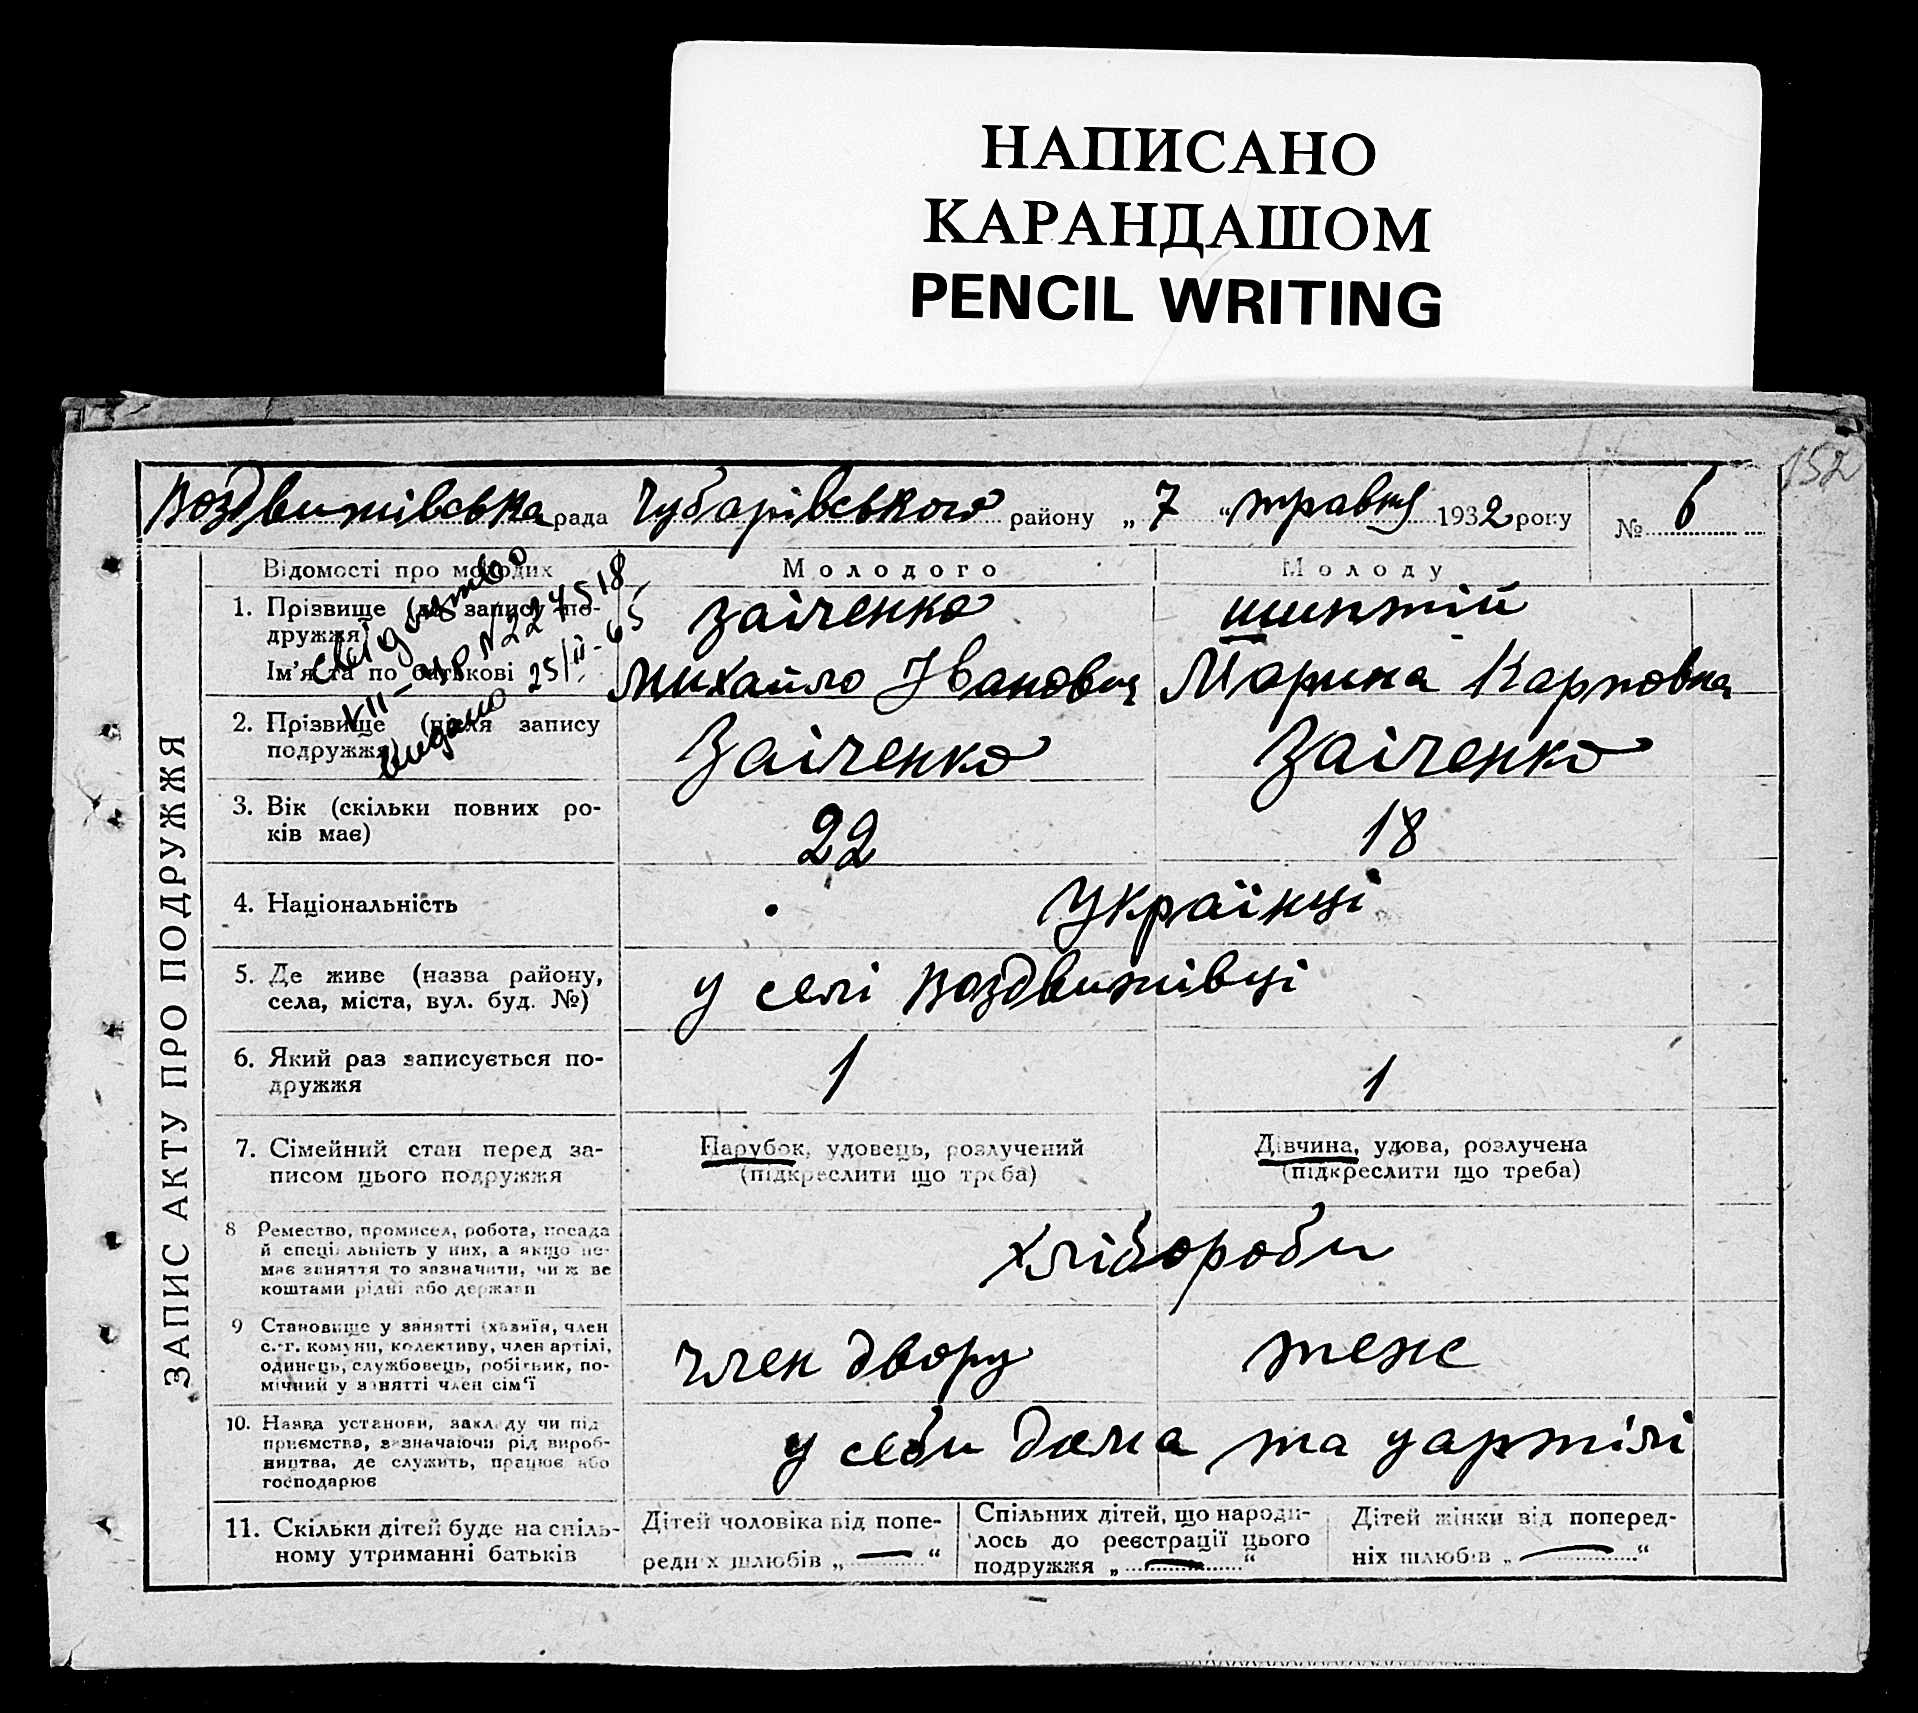 НАПИСАНО
КАРАНДАШОМ
PENCIL WRITING
152
Воздвижівська рада Чубарівського району „ 7 “ травня 1932 року № 6
ЗАПИС АКТУ ПРО ПОДРУЖЖЯ
Відомості про молодих Молодого Молоду
свідоцтво
VII-ЯР N 227518
видано 25/II-65
1. Прізвище (до запису по-
дружжя) Заіченко Шиптій
Ім'я та по батькові Михайло Іванович Марина Карповна
2. Прізвище (після запису
подружжя Заіченко Заіченко
3. Вік (скільки повних ро-
ків має) 22 18
4. Національність Українці
5. Де живе (назва району,
села, міста, вул. буд. №) у селі Воздвижівці
6. Який раз записується по-
дружжя 1 1
7. Сімейний стан перед за-
писом цього подружжя
Парубок, удовець, розлучений
(підкреслити що треба)
Дівчина, удова, розлучена
(підкреслити що треба)
8 Ремество, промисел, робота, посада
й спеціальність у них, а якщо не-
має заняття то зазначити, чиїм
коштами рідні або держави
хлібороби
9 Становище у занятті (хазяїн, член
с.-г. комуни, колективу, член артілі,
одинець, службовець, робітник, по-
мічний у занятті член сім'ї
член двору теж
10. Назва установи, закладу чи під
приємства, зазначаючи рід вироб-
ництва, де служить, працює або
господарює
у себи дома та у артілі
11. Скільки дітей буде на спіль-
ному утриманні батьків
Дітей чоловіка від попе-
редніх шлюбів „ — “
Спільних дітей, що народи-
лось до реєстрації цього
подружжя „ — “
Дітей жінки від поперед-
ніх шлюбів „ — “